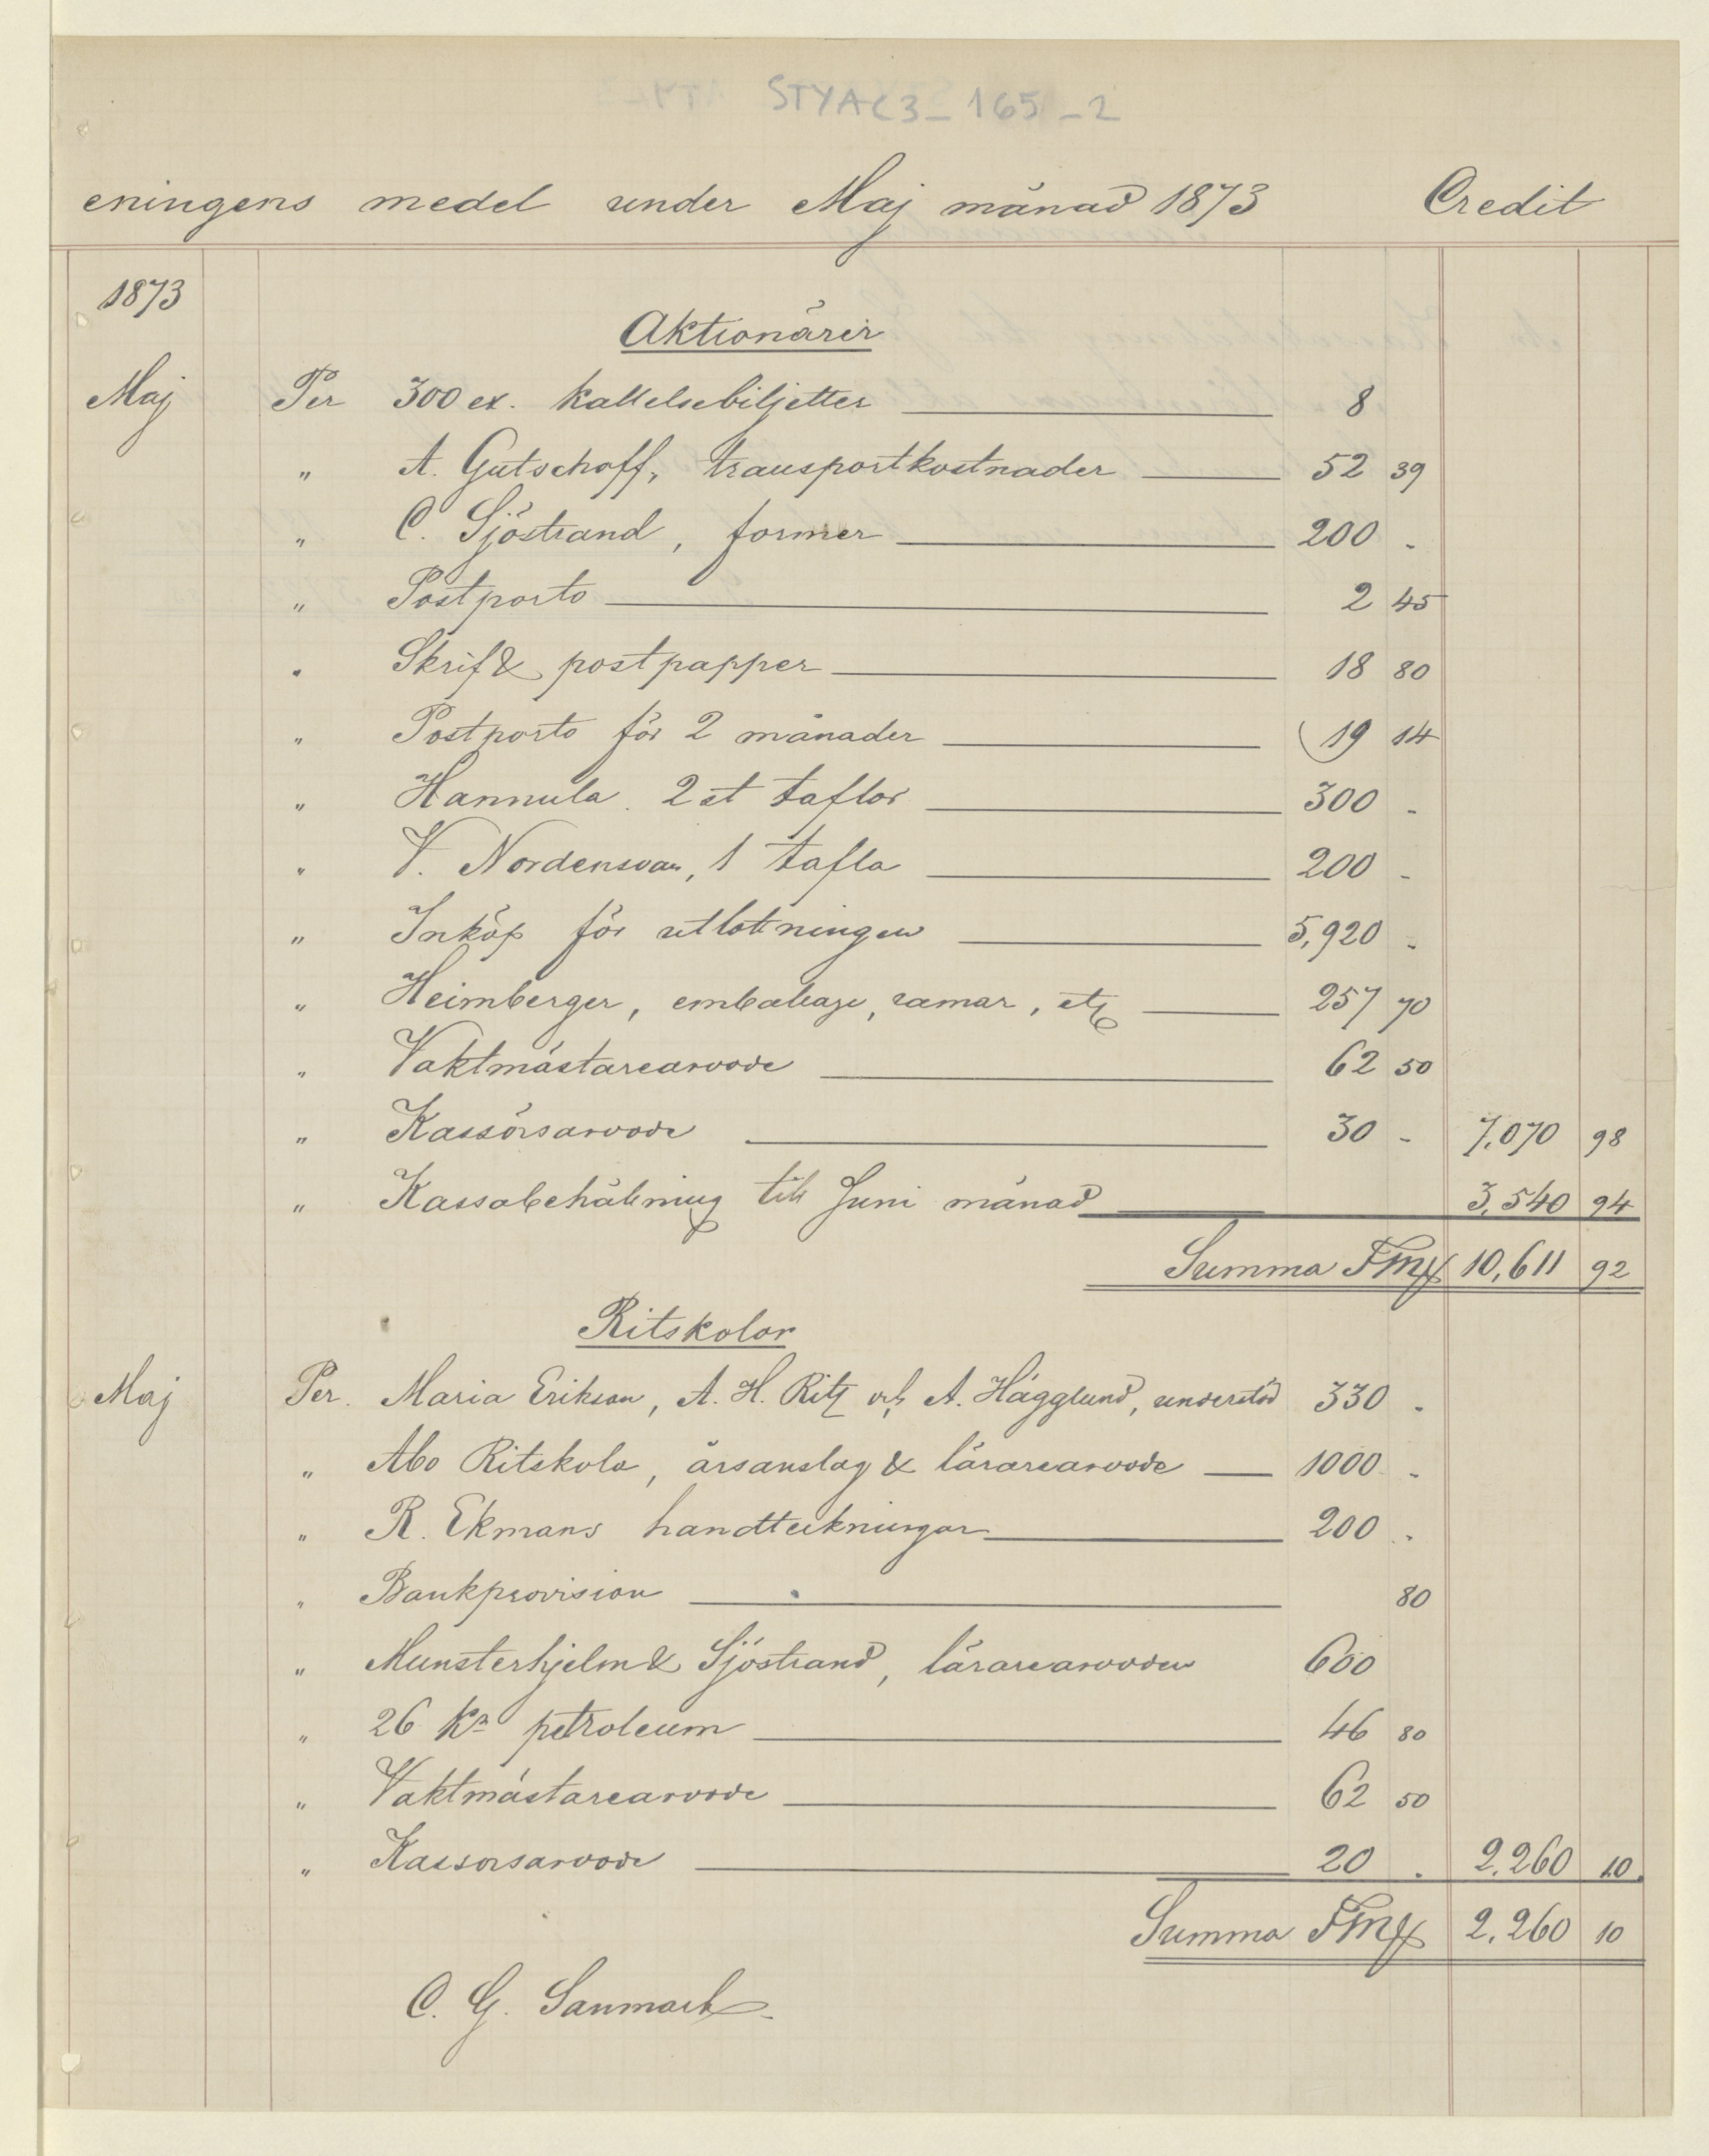 STYAC3_165_2
eningens medel under Maj månad 1873 Credit
1873
Aktionärer
Maj Per 300 ex. kallelsebiljetter 8
" A. Gutschoff, transportkostnader 52 39
" C. Sjöstrand, former 200 -
" Postporto 2 45
" Skrif & postpapper 18 80
" Postporto för 2 månader 19 14
" Hannula. 2 st taflor 300 -
" V. Nordensvan, 1 tafla 200 -
" Inköp för utlottningen 5,920 -
" Heimberger, embalage, ramar, etc 257 70
" Vaktmästarearvode 62 50
" Kassörsarvode 30 - 7,070 98
" Kassabehållning till Juni månad 3,540 94
Summa Fmk 10,611 92
Ritskolor
Maj Per. Maria Erikson, A. H. Ritz och A. Hägglund, understöd 330 -
" Abo Ritskola, årsanslag & lärarearvode 1000 -
" R. Ekmans handteckningar 200 -
" Bankprovision 80
" Munsterhjelm & Sjöstrand, lärarearvoden 600
" 26 kr petroleum 46 80
" Vaktmästarearvode 62 50
" Kassorsarvode 20 . 2,260 10.
Summa Fmk 2,260 10
C. G. Sanmark